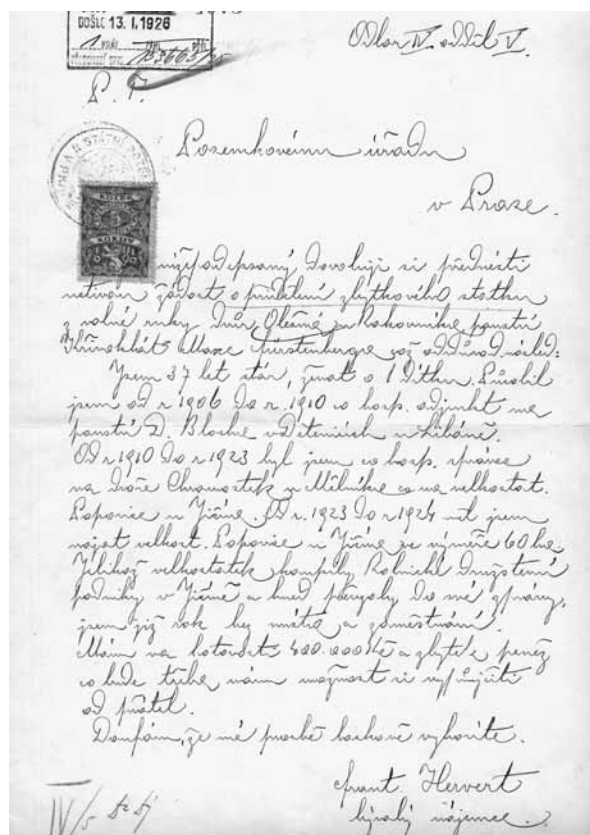 DOŠLO 13. I. 1926
Odbor IV. oddíl V.
P. T.
Pozemkovému úřadu
v Praze.
KOLEK
5
KORUN
níže podepsaný dovoluje si přednésti
uctivou žádost o přidělení zbytkového statku
z volné ruky dvůr Olešná u Rakovníka panství
Křivoklát Maxe Fürstenberga což odůvod. násled:
Jsem 37 let stár, ženat o 1 dítku. Působil
jsem od r 1906 do r. 1910 co hosp. adjunkt na
panství D. Blocha v Detenicích u Libáně.
Od r 1910 do r 1923 byl jsem co hosp. správce
na dvoře u Mělníka co na velkostat.
Popovice u Jičína. Od r. 1923 do r 1924 měl jsem
najat velkost. Popovice u Jičína ve výměře 60 ha
Jelikož velkostatek koupily Rolnické družstevní
podniky v Jičíně a hned převzaly do své zprávy,
jsem již rok bez místa a zaměstnání.
Mám na hotovosti 400.000 Kč a zbytek peněz
co bude třeba mám možnost si vypůjčiti
od přátel.
Doufám, že mé prosbě laskavě vyhovíte.
Frant. Hervert
bývalý nájemce.
IV/5